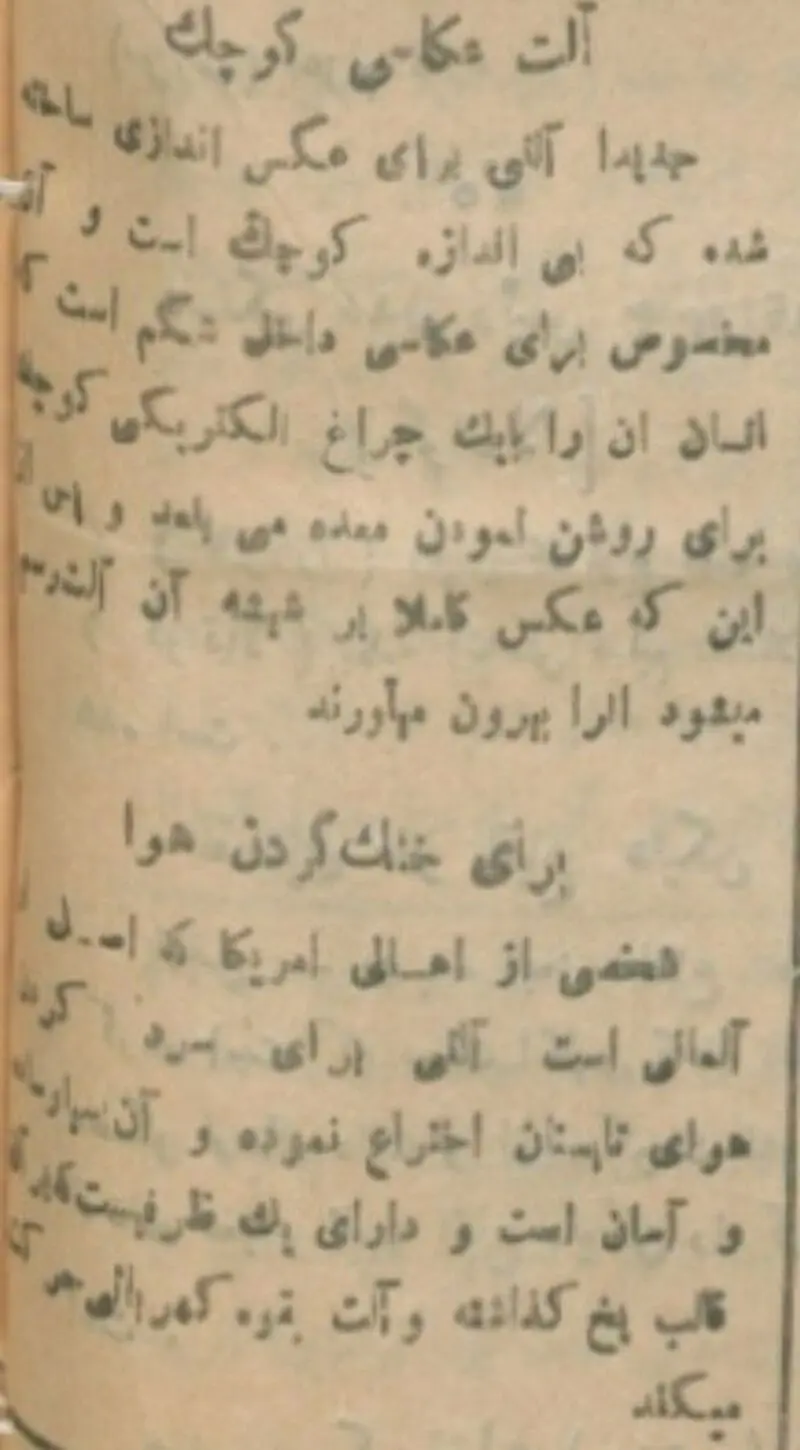 آلت عکاسی کوچك
جدیدا آلتی برای عکس اندازی ساخته
شده که بی اندازه کوچك است و
مخصوص برای عکاسی داخل شکم است
انسان ان را بایك چراغ الکتریکی
برای روشن نمودن معده می بلعد و پس
این که عکس کاملا بر شیشه آن
میشود انرا بیرون میآورند
برای خنك کردن هوا
شخصی از اهالی امریکا که اصل
آلمانی است آلتی برای سرد
هوای تابستان اختراع نموده و آن
و آسان است و دارای یك ظرفیست
قالب یخ گذاشته و آلت بقوه کهربائی
میکند